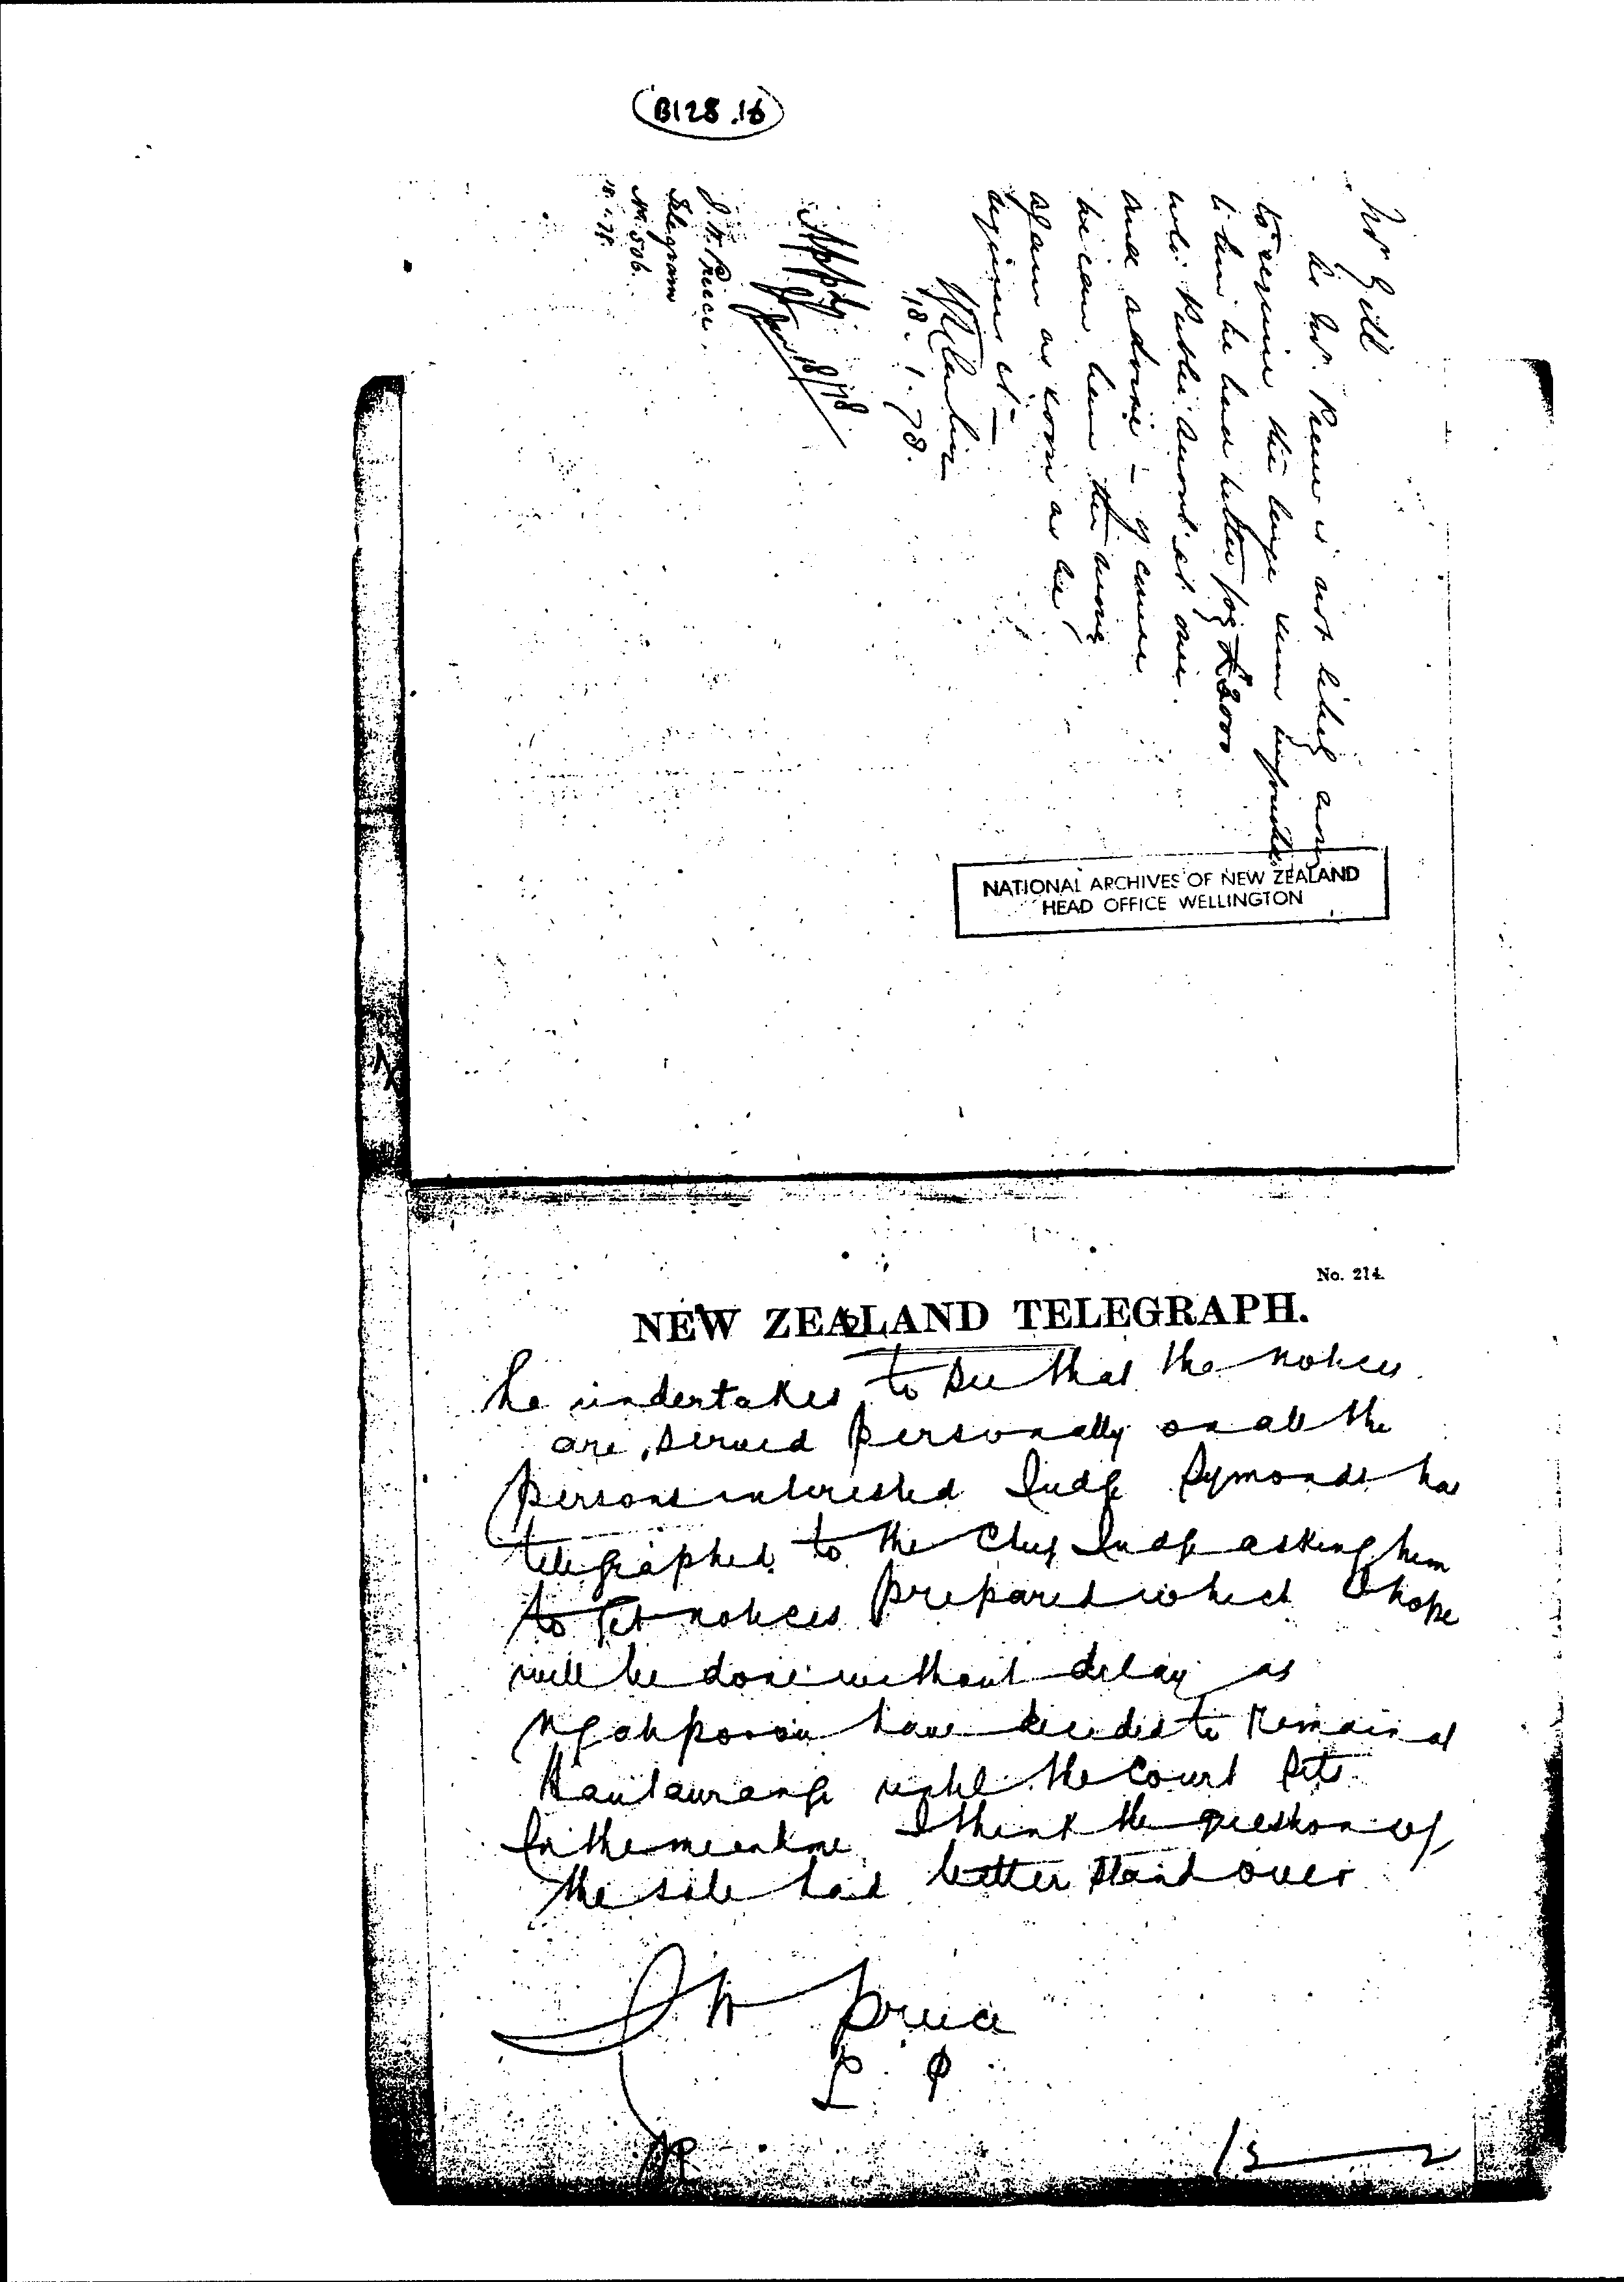 B128.16
Mr Gill
As Mr. Preece is not likely now
to require the large sum imprested
to him he had better pay £2000
into Public Account at once.
and advise — of course
he can have the money
again as soon as he
requires it —
18.1.78.
Apply.
Jan 18/78
J. W. Preece.
Telegram
No. 506.
18.1.78.
NATIONAL ARCHIVES OF NEW ZEALAND
HEAD OFFICE WELLINGTON
No. 214.
NEW ZEALAND TELEGRAPH.
he undertakes to see that the notices
are served personally on all the
persons interested Judge Symonds has
telegraphed to the Chief Judge asking him
to get notices prepared which I hope
will be done without delay as
Ngatiporou have decided to remain at
until the Court sits
In the meantime I think the question of
the sale had better stand over
J W Preece
L P